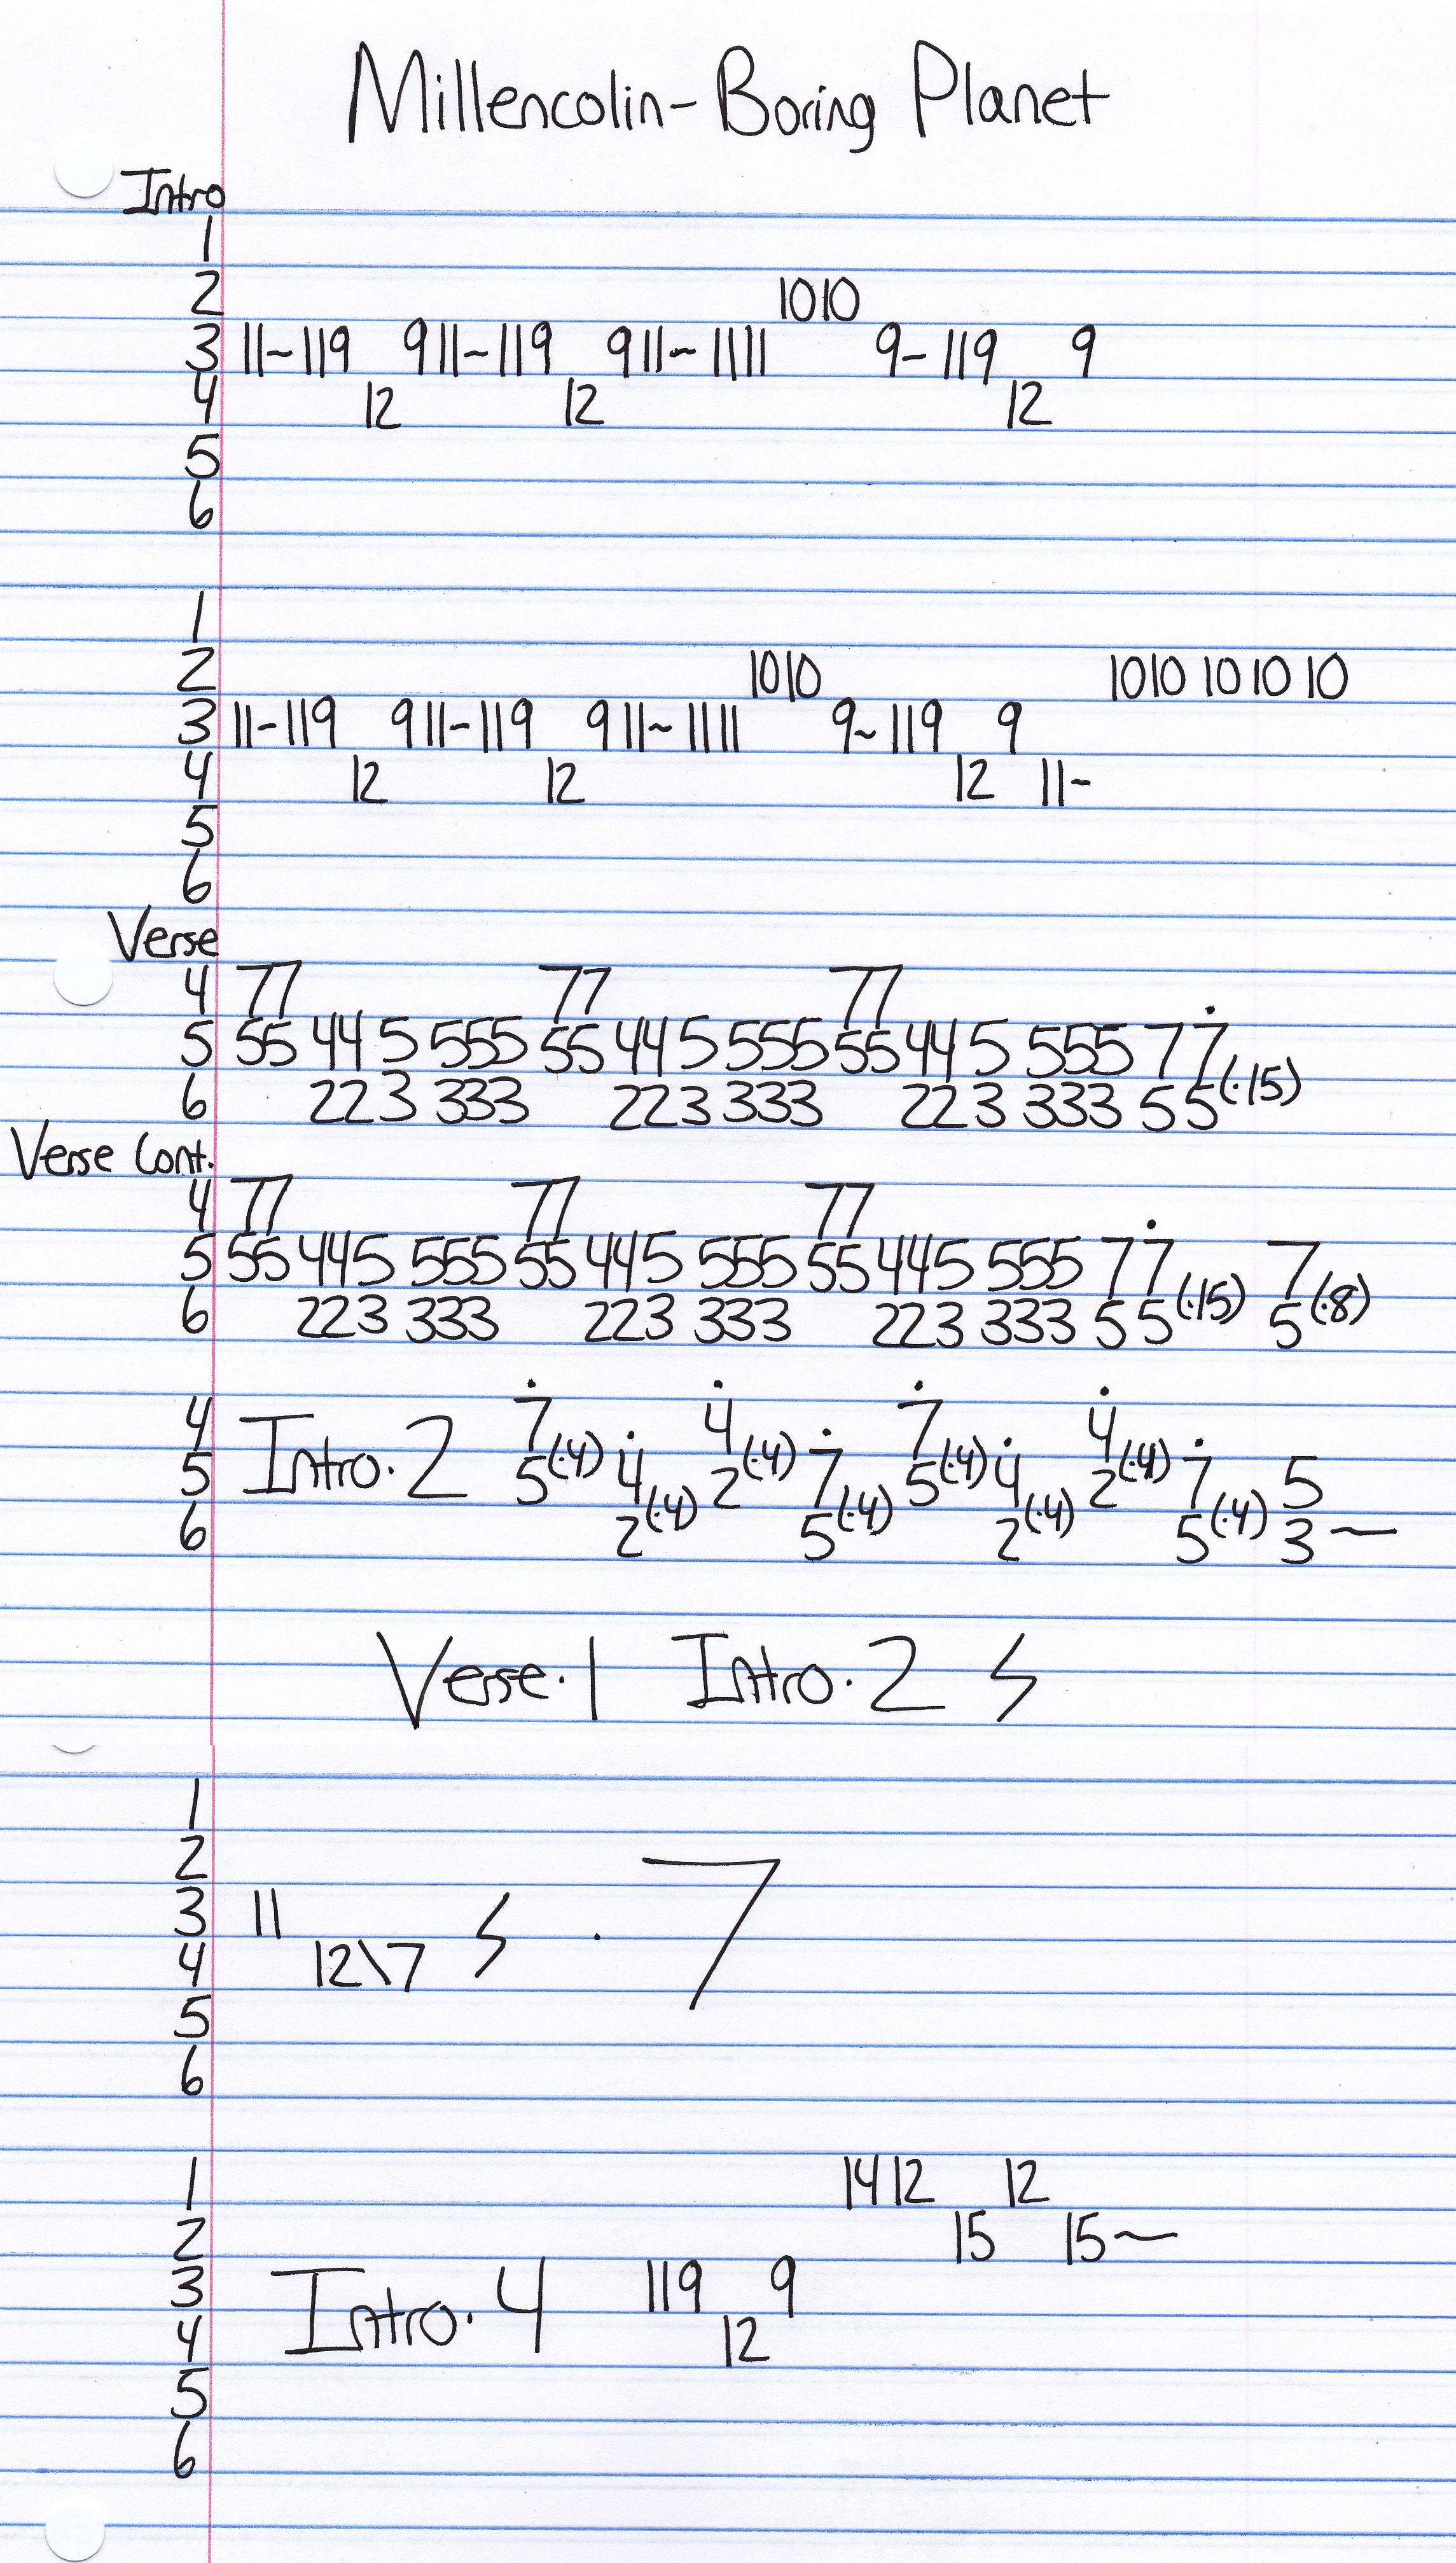 Millencolin-Boring Planet
Intro
1
2 1010
3 11~119 911~119 911~1111 9-119 9
4 12 12 12
5
6
1
2 1010 1010 10 10 10
3 11-119 911-119 911~1111 9~119 9
4 12 12 12 11-
5
6
Verse
4 77 77 77
5 55 44 5 555 55 44 5 555 55 44 5 555 7 7
6 22 3 333 22 3 333 22 3 333 5 5 (·15)
Verse Cont.
4 77 77 77
5 55 445 555 55 445 555 55 445 555 7 7 7
6 223 333 223 333 223 333 5 5 (·15) 5 (·8)
4 7 4 7 4
5 Intro·2 5(·4) 4 2(·4) 7 5(·4) 4 2(·4) 7 5
6 2(·4) 5(·4) 2(·4) 5(·4) 3~
Verse·1 Intro·2
1
2
3 11
4 12\7 · 7
5
6
1 1412 12
2 15 15~
3 Intro·4 119 9
4 12
5
6